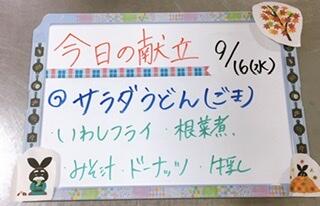 今日の献立 9/16(水)
◎ サラダうどん(ごま)
・いわしフライ ・根菜煮
・みそ汁 ・ドーナッツ ・牛乳